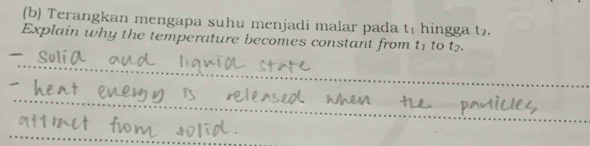 (b) Terangkan mengapa suhu menjadi malar pada t₁ hingga t₂.
Explain why the temperature becomes constant from t₁ to t₂.
- solid and liquid state
- heat energy is released when the particles
attract from solid.